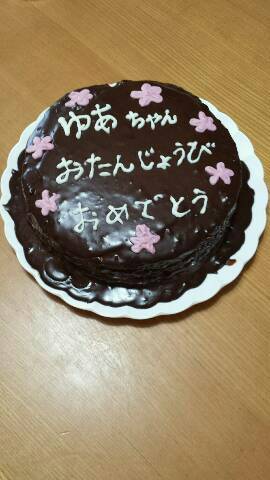 ゆあちゃん
おたんじょうび
おめでとう